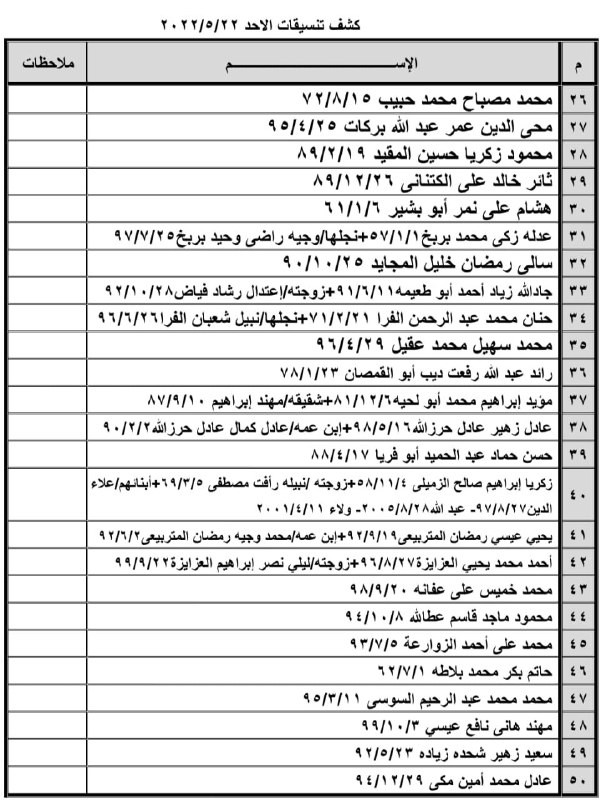 كشف تنسيقات الاحد ٢٠٢٢/٥/٢٢
م الإســـم ملاحظات
٢٦ محمد مصباح محمد حبيب ٧٢/٨/١٥
٢٧ محى الدين عمر عبد الله بركات ٩٥/٤/٢٥
٢٨ محمود زكريا حسين المقيد ٨٩/٢/١٩
٢٩ ثائر خالد على الكتنانى ٨٩/١٢/٢٦
٣٠ هشام على نمر أبو بشير ٦١/١/٦
٣١ عدله زكى محمد بربخ٥٧/١/١+نجلها/وجيه راضى وحيد بربخ٩٧/٧/٢٥
٣٢ سالى رمضان خليل المجايد ٩٠/١٠/٢٥
٣٣ جادالله زياد أحمد أبو طعيمه٩١/٦/١١+زوجته/إعتدال رشاد فياض٩٢/١٠/٢٨
٣٤ حنان محمد عبد الرحمن الفرا ٧١/٢/٢١+نجلها/نبيل شعبان الفرا٩٦/٦/٢٦
٣٥ محمد سهيل محمد عقيل ٩٦/٤/٢٩
٣٦ رائد عبد الله رفعت ديب أبو القمصان ٧٨/١/٢٣
٣٧ مؤيد إبراهيم محمد أبو لحيه٨١/١٢/٦+شقيقه/مهند إبراهيم ٨٧/٩/١٠
٣٨ عادل زهير عادل حرزالله٩٨/٥/١٦+إبن عمه/عادل كمال عادل حرزالله٩٠/٢/٢
٣٩ حسن حماد عبد الحميد أبو فريا ٨٨/٤/١٧
٤٠ زكريا إبراهيم صالح الزميلى ٥٨/١١/٤+زوجته /نبيله رأفت مصطفى ٦٩/٣/٥+أبنائهم/علاء
الدين٩٧/٨/٢٧- عبد الله٢٠٠٥/٨/٢٨- ولاء ٢٠٠١/٤/١١
٤١ يحيي عيسي رمضان المتربيعى٩٢/٩/١٩+إبن عمه/محمد وجيه رمضان المتربيعى٩٢/٦/٢
٤٢ أحمد محمد يحيي العزايزة٩٦/٨/٢٧+زوجته/ليلي نصر إبراهيم العزايزة٩٩/٩/٢٢
٤٣ محمد خميس على عفانه ٩٨/٩/٢٠
٤٤ محمود ماجد قاسم عطالله ٩٤/١٠/٨
٤٥ محمد على أحمد الزوارعة ٩٣/٧/٥
٤٦ حاتم بكر محمد بلاطه ٦٢/٧/١
٤٧ محمد محمد عبد الرحيم السوسى ٩٥/٣/١١
٤٨ مهند هانى نافع عيسي ٩٩/١٠/٣
٤٩ سعيد زهير شحده زياده ٩٢/٥/٢٣
٥٠ عادل محمد أمين مكى ٩٤/١٢/٢٩